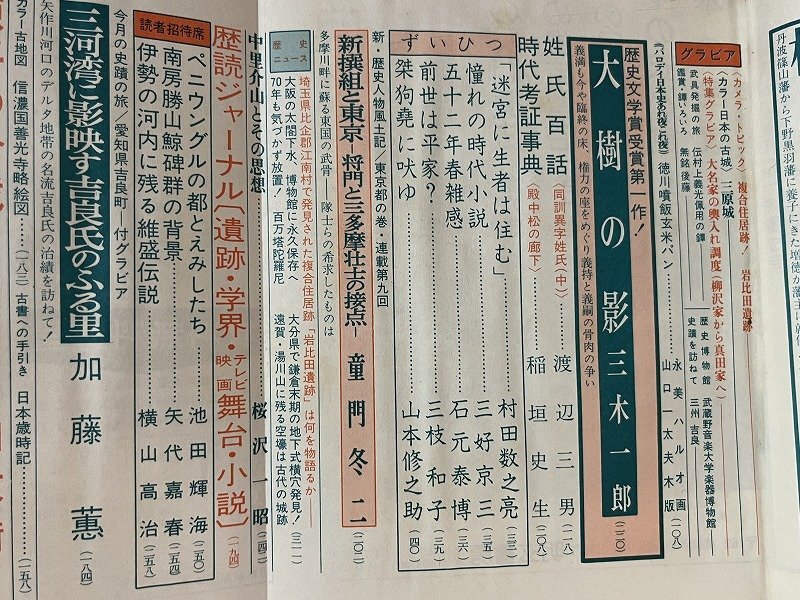 丹波篠山藩から下野黒羽藩に養子にきた増徳が藩主に
グラビア
〈カメラ・トピック〉複合住居跡！ 岩比田遺跡
〈カラー日本の古城〉三原城
〈特集グラビア〉大名家の輿入れ調度（柳沢家から真田家へ）
武具発掘の旅 伝村上義光着用の鐔 歴史博物館 武蔵野音楽大学楽器博物館
鑑賞・鐔いろいろ 無銘後藤 史蹟を訪ねて 三州吉良
〈パロディ・日本史あれ夜これ夜〉徳川噴飯玄米パン……永美ハルオ画 山口一太夫木版（一〇八）
歴史文学賞受賞第一作！
大樹の影 三木一郎（二二〇）
義満も今や臨終の床、権力の座をめぐり義持と義嗣の骨肉の争い
姓氏百話〈同訓異字姓氏（中）〉渡辺三男（一一八）
時代考証事典〈殿中松の廊下〉稲垣史生（二〇八）
ずいひつ
「迷宮に生者は住む」……村田数之亮（三三）
憧れの時代小説……三好京三（三五）
五十二年春雑感……石元泰博（三六）
前世は平家？……三枝和子（三九）
桀狗堯に吠ゆ……山本修之助（四〇）
新・歴史人物風土記 東京都の巻・連載第九回
新撰組と東京―将門と三多摩壮士の接点― 童門冬二（二〇二）
多摩川畔に蘇る東国の武骨――隊士らの希求したものは
歴史ニュース
埼玉県比企郡江南村で発見された複合住居跡「岩比田遺跡」は何を物語るか
大阪の太閤下水、博物館に永久保存へ 大分県で鎌倉末期の地下式横穴発見！
70年も気づかず放置！ 百万塔陀羅尼 遠賀・湯川山に残る空壕は古代の城跡（三一一）
中里介山とその思想……桜沢一昭（二四二）
歴読ジャーナル〔遺跡・学界・テレビ・映画 舞台・小説〕（一九四）
読者招待席
ペニウングルの都とえみしたち……池田輝海（二五〇）
南房勝山鯨碑群の背景……矢代嘉春（二五四）
伊勢の河内に残る維盛伝説……横山高治（二五八）
今月の史蹟の旅／愛知県吉良町 付グラビア
三河湾に影映す吉良氏のふる里 加藤蕙（一八四）
矢作川河口のデルタ地帯の名流吉良氏の治績を訪ねて！
カラー古地図 信濃国善光寺略絵図……（一八三） 古書への手引き 日本歳時記……（一五八）